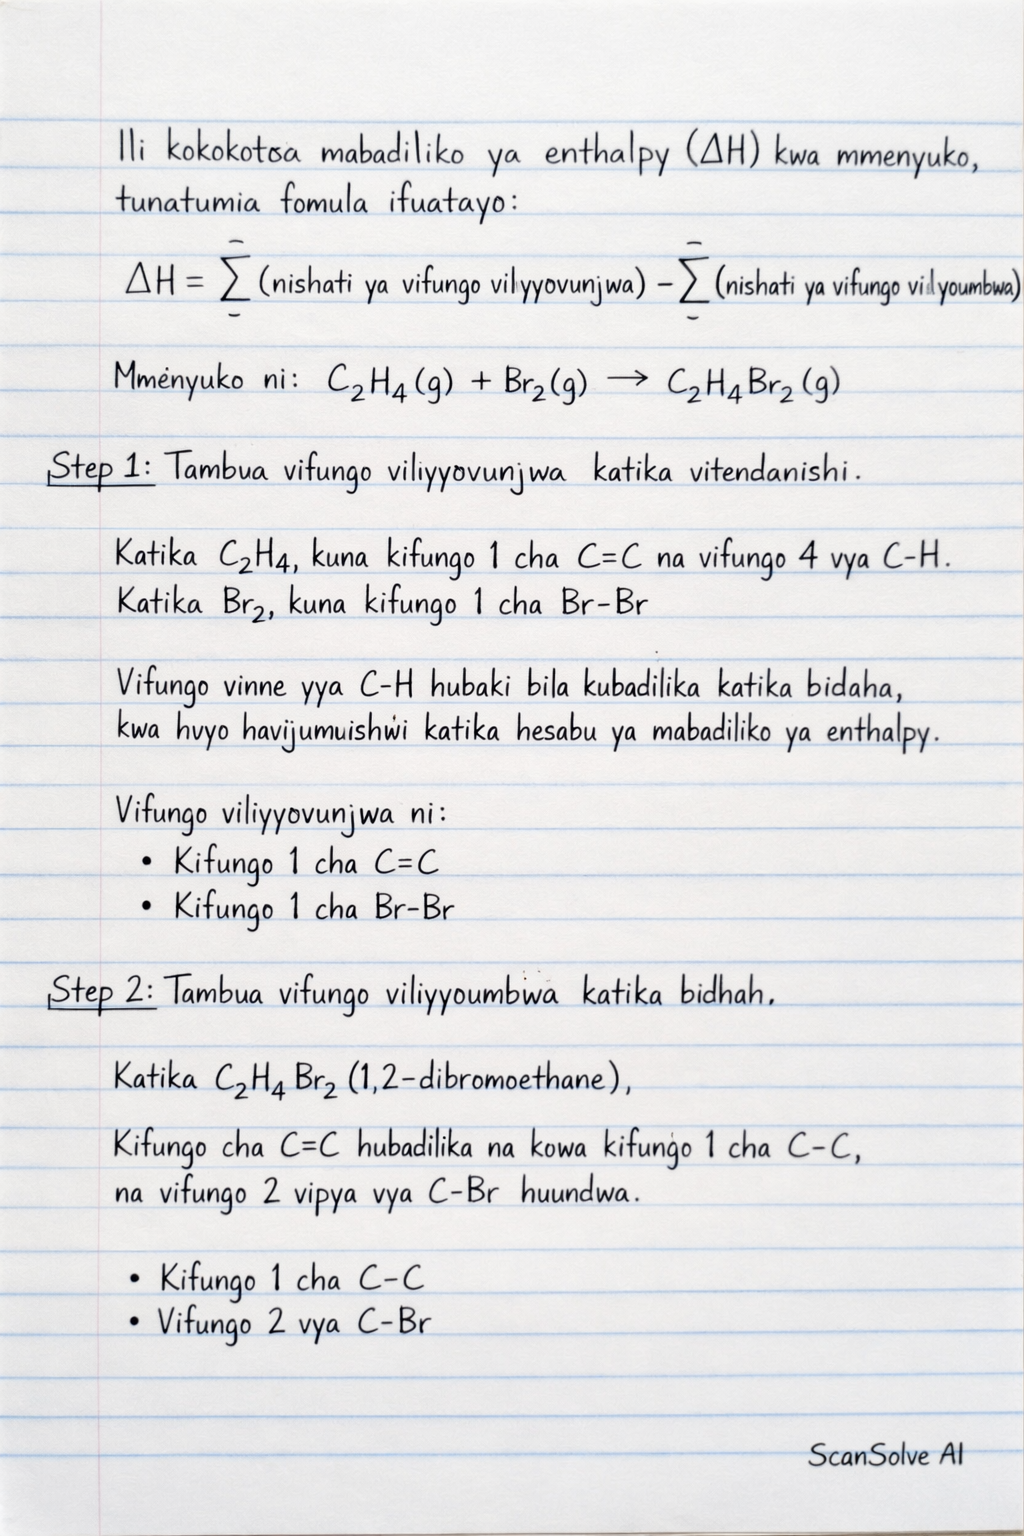 Ili kokokotoa mabadiliko ya enthalpy (ΔH) kwa mmenyuko,
tunatumia fomula ifuatayo:
ΔH = ∑ (nishati ya vifungo vilyyovunjwa) − ∑ (nishati ya vifungo vilyoumbwa)
Mmenyuko ni: C₂H₄(g) + Br₂(g) → C₂H₄Br₂(g)
Step 1: Tambua vifungo viliyyovunjwa katika vitendanishi.
Katika C₂H₄, kuna kifungo 1 cha C=C na vifungo 4 vya C-H.
Katika Br₂, kuna kifungo 1 cha Br-Br
Vifungo vinne yya C-H hubaki bila kubadilika katika bidaha,
kwa hvyo havijumuishwi katika hesabu ya mabadiliko ya enthalpy.
Vifungo viliyyovunjwa ni:
• Kifungo 1 cha C=C
• Kifungo 1 cha Br-Br
Step 2: Tambua vifungo viliyyoumbwa katika bidhah.
Katika C₂H₄Br₂ (1,2-dibromoethane),
Kifungo cha C=C hubadilika na kowa kifungo 1 cha C-C,
na vifungo 2 vipya vya C-Br huundwa.
• Kifungo 1 cha C-C
• Vifungo 2 vya C-Br
ScanSolve AI